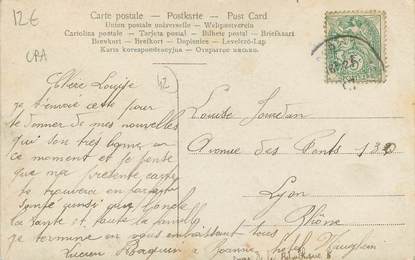 12€
CPA
Carte postale - Postkarte - Post Card
Union postale universelle - Weltpostverein
Cartolina postale - Tarjeta postal - Bilhete postal - Briefkaart
Brevkort - Brefkort - Dopisnice - Levelező-Lap
Karta korespondencyjna - Открытое письмо.
42
Chère Louise
je t'envoie cette pour
te donner de mes nouvelles
qui son très bonne en
ce moment et je pense
que ma présente carte
te trouvera en
santé ainsi que
la tante et toute la famille
je termine en vous embrassant tous
Lucien à Roanne hôtel
Louise
Avenue des Ponts
Lyon
Rhône
rue de la